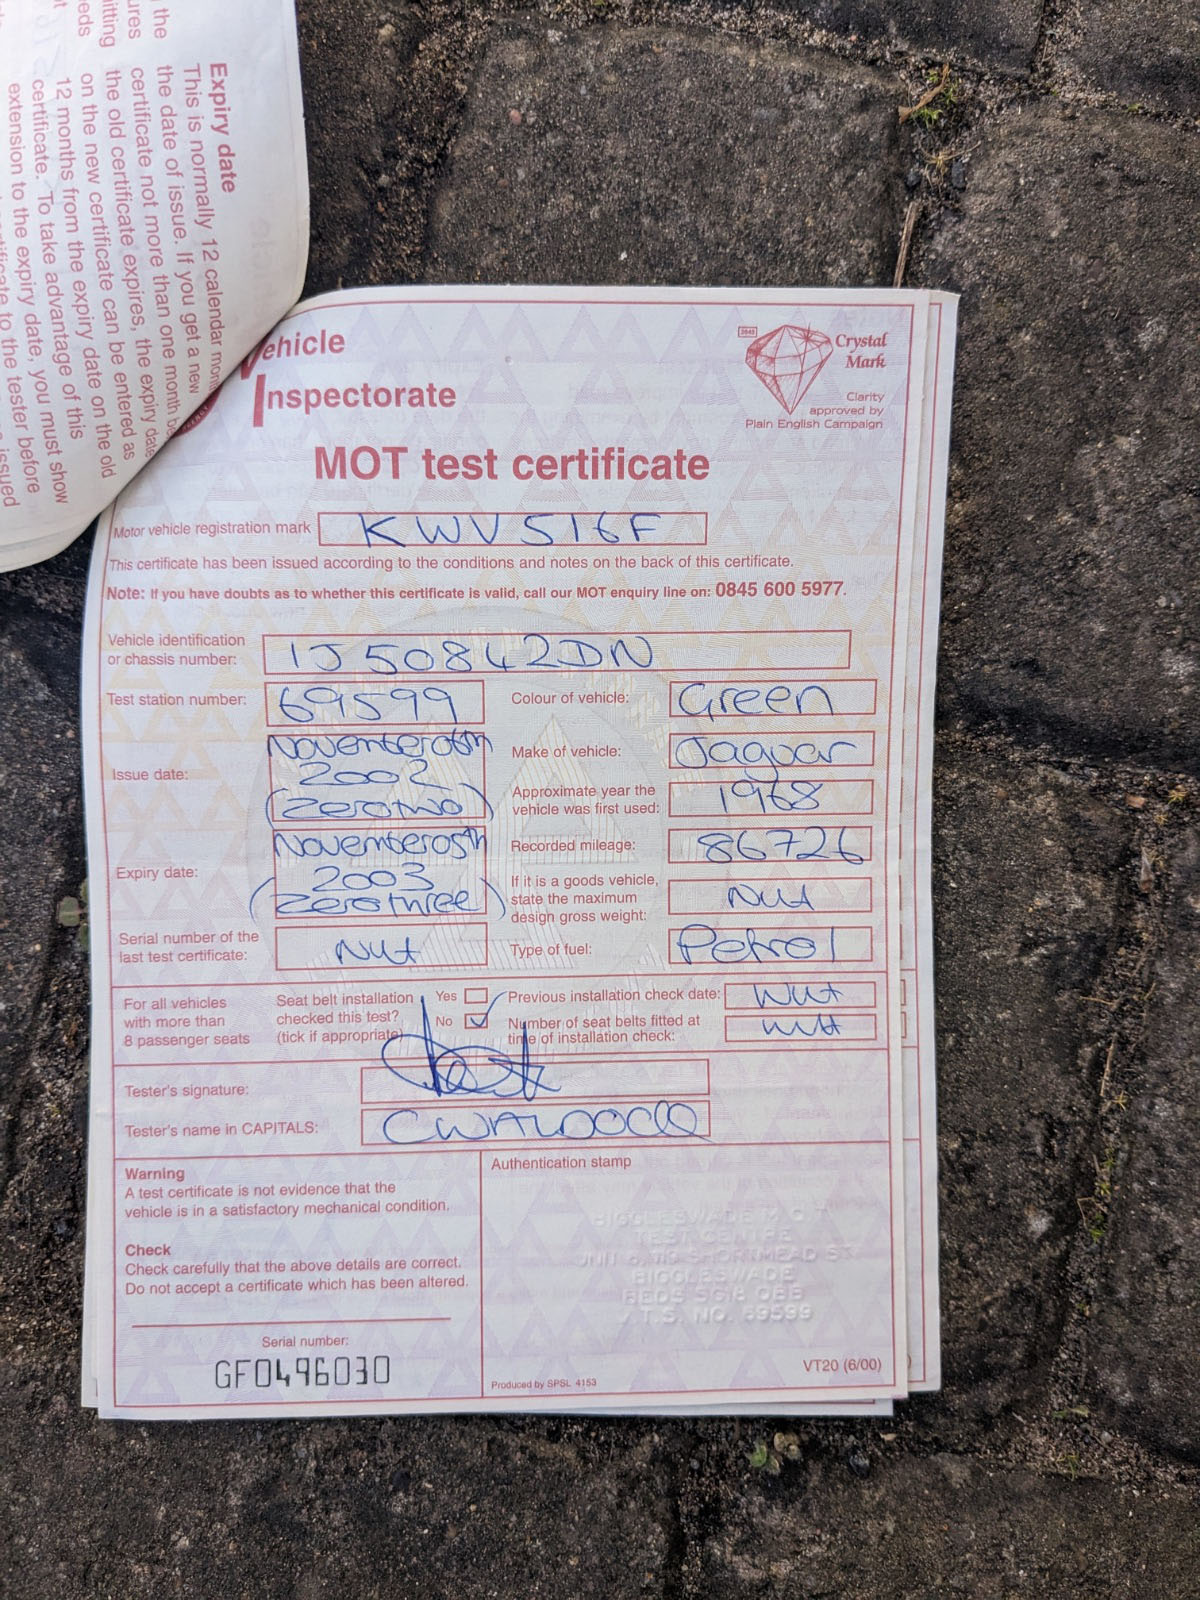 the
ures
itting
eds
Expiry date
This is normally 12 calendar
the date of issue. If you get a new
certificate not more than one month
the old certificate expires, the expiry date
on the new certificate can be entered as
12 months from the expiry date on the old
certificate. To take advantage of this
extension to the expiry date, you must show
to the tester before
issued
Vehicle
Inspectorate
Crystal
Mark
Clarity
approved by
Plain English Campaign
MOT test certificate
Motor vehicle registration mark KWV516F
This certificate has been issued according to the conditions and notes on the back of this certificate.
Note: If you have doubts as to whether this certificate is valid, call our MOT enquiry line on: 0845 600 5977.
Vehicle identification
or chassis number: 1J50842DN
Test station number: 69599
Colour of vehicle: Green
Issue date: November 06th
2002
(zero two)
Make of vehicle: Jaguar
Approximate year the
vehicle was first used: 1968
Expiry date: November 05th
2003
(zero three)
Recorded mileage: 86726
If it is a goods vehicle,
state the maximum
design gross weight:
Serial number of the
last test certificate:
Type of fuel: Petrol
For all vehicles
with more than
8 passenger seats
Seat belt installation
checked this test?
(tick if appropriate)
Yes
No
Previous installation check date:
Number of seat belts fitted at
time of installation check:
Tester's signature:
Tester's name in CAPITALS:
Warning
A test certificate is not evidence that the
vehicle is in a satisfactory mechanical condition.
Check
Check carefully that the above details are correct.
Do not accept a certificate which has been altered.
Serial number:
GF0496030
Authentication stamp
BIGGLESWADE
TEST CENTRE
SHORTMEAD ST
BIGGLESWADE
BEDS SG18 0BB
V.T.S. NO. 69599
Produced by SPSL 4153
VT20 (6/00)